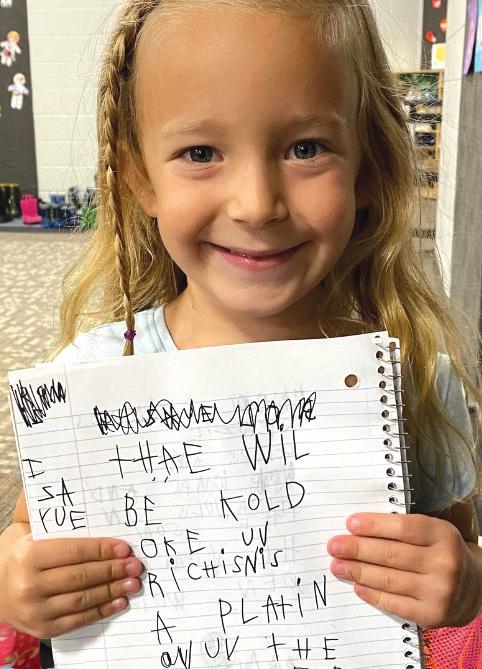 I
SA
YUE
THAE WIL
BE KOLD
OKE UV
RiCHiSNiS
A PLATiN
UV THE